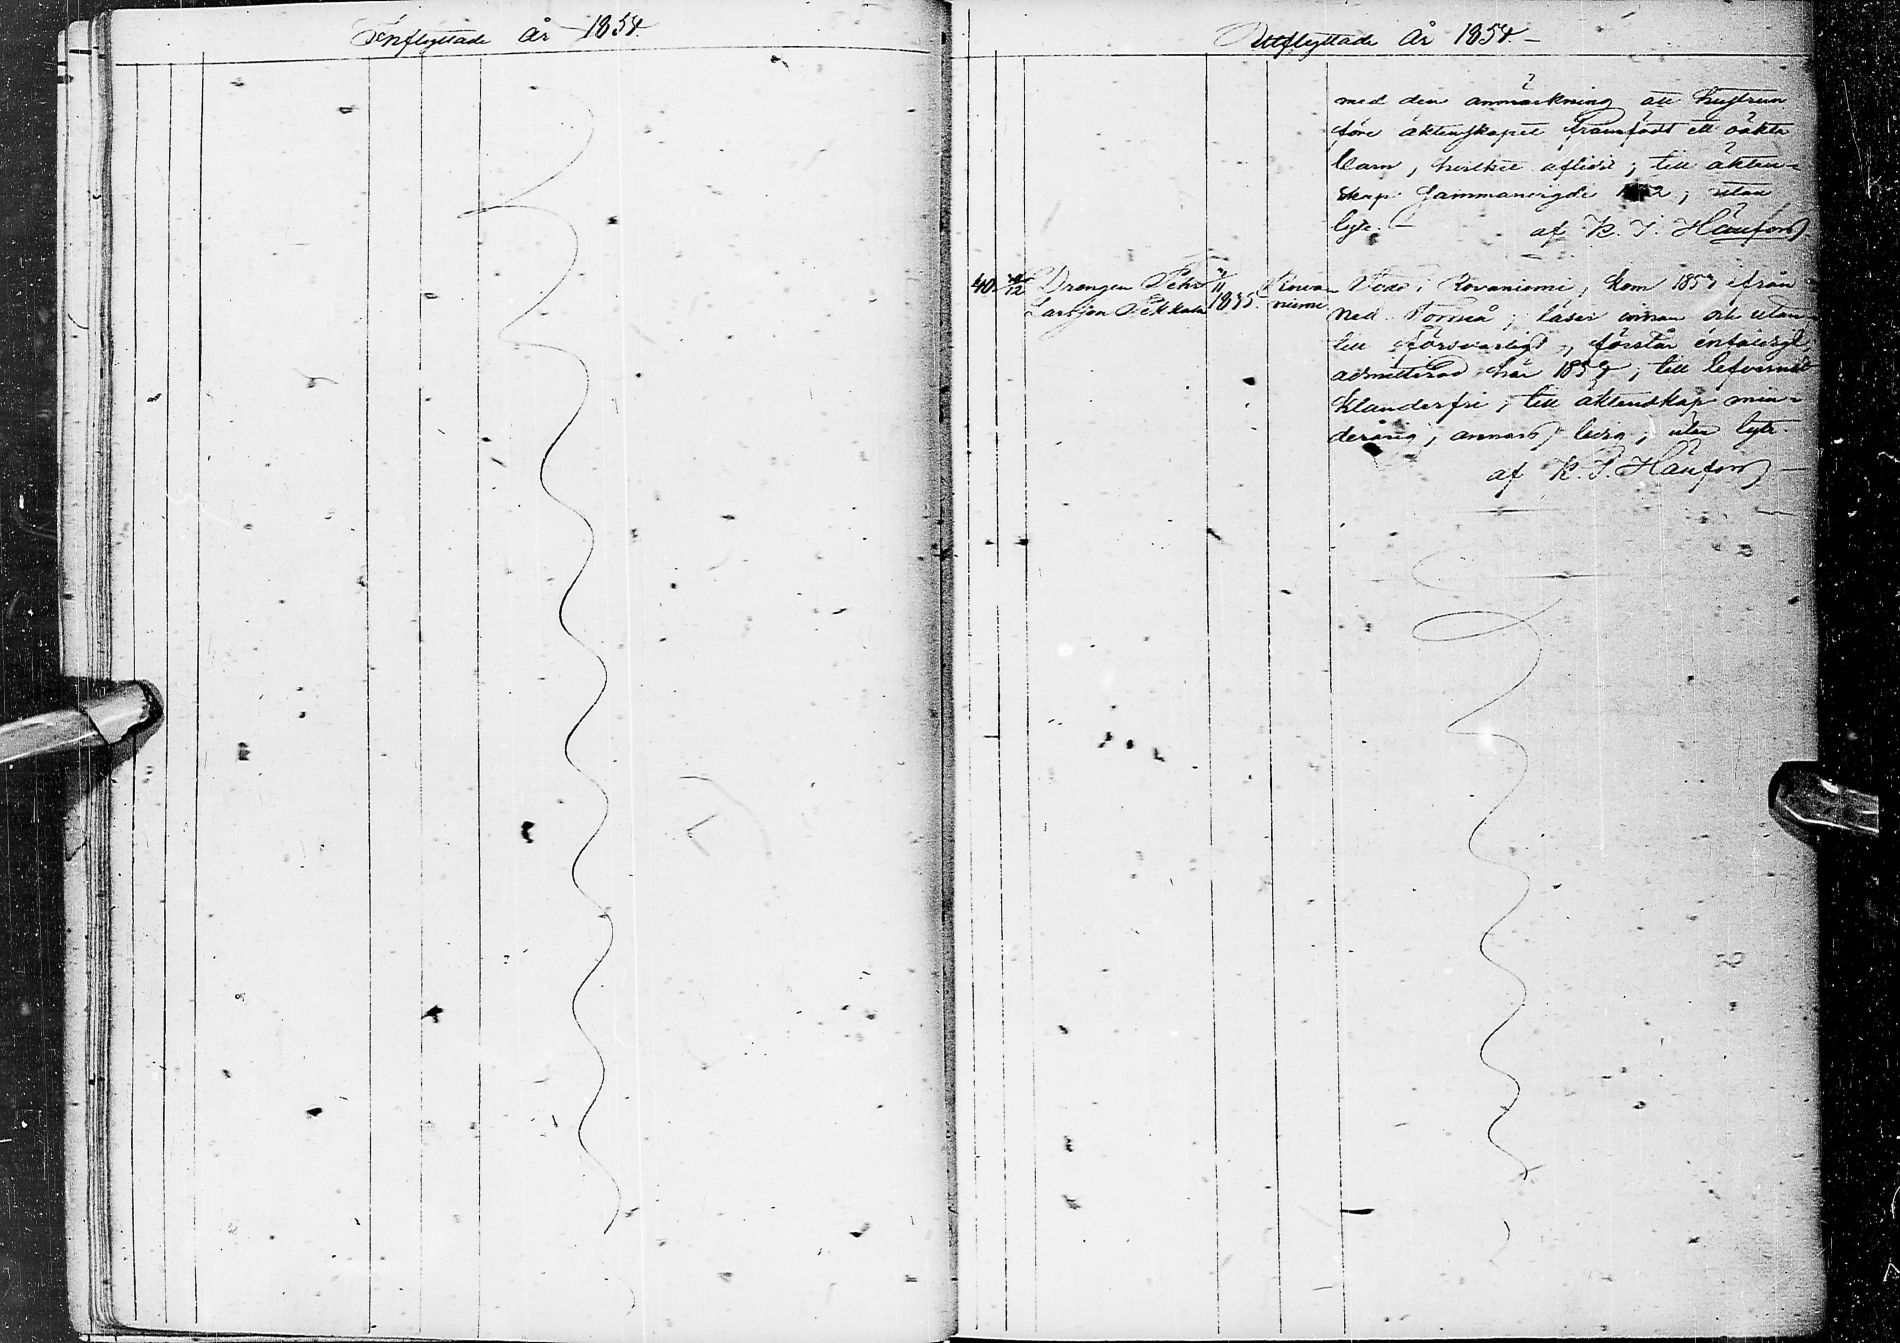 Inflyttade år 1854
Uttflyttade år 1854
med den anmärkning att hustrun
före äktenskapet framfödt ett oäkta
barn, hvilket aflidit; till äkten-
skap sammanvigde 1852; utan
lyte. — af K. J. Hänfors
40. 12 Drängen Pehr 11 Rova- Född i Rovaniemi, kom 1853 ifrån
Larsson Pekkala 1835 niemi Ned. Torneå; läser innan och utan
till försvarligt, förstår enfaldigt,
admitterad här 1853; till lefvernet
klanderfri; till äktenskap min-
derårig, annars ledig; utan lyte
af K. J. Hänfors —